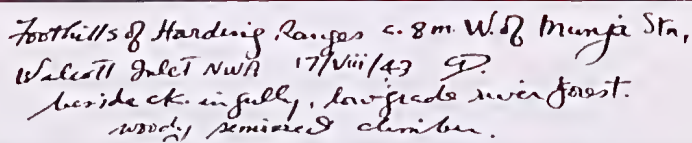 Foothills of Harding Ranges c. 8 m. W. of Munja Stn,
Walcott Inlet NWA 17/viii/43
beside ck. in gully, low grade river forest.
woody climber.